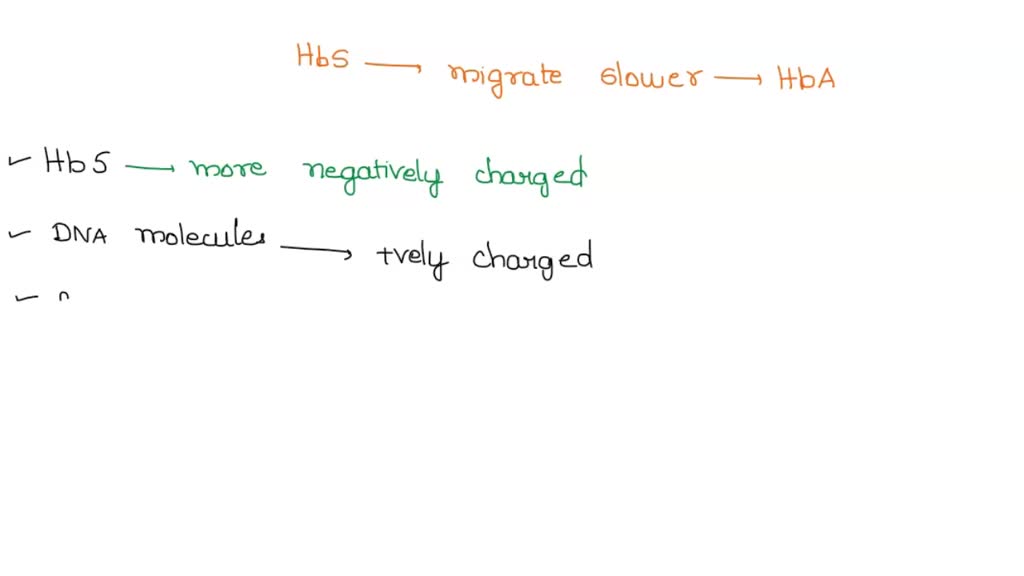 HbS → migrate slower → HbA
✓ HbS → more negatively charged
✓ DNA molecules → +vely charged
✓